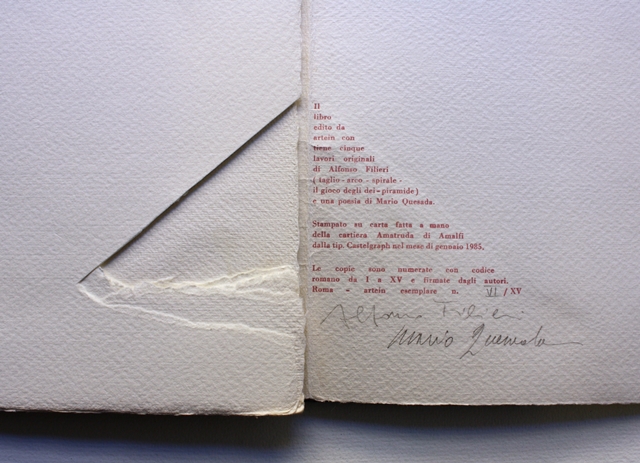 Il
libro
edito da
artein con
tiene cinque
lavori originali
di Alfonso Filieri
( taglio - arco - spirale -
il gioco degli dei - piramide )
e una poesia di Mario Quesada.
Stampato su carta fatta a mano
della cartiera Amatruda di Amalfi
dalla tip. Castelgraph nel mese di gennaio 1985.
Le copie sono numerate con codice
romano da I a XV e firmate dagli autori.
Roma - artein esemplare n. VI / XV
Alfonso Filieri
Mario Quesada